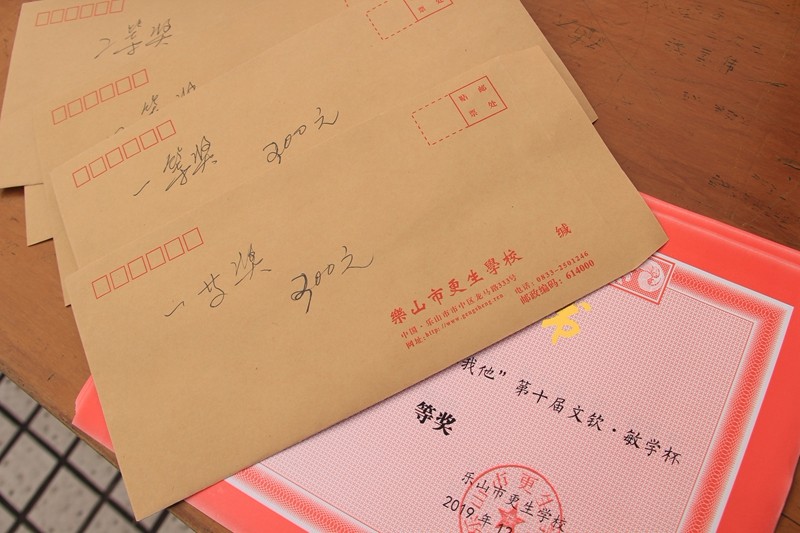 二等奖
一等奖 300元
一等奖 300元
邮政编码:614000
贴 邮
票 处
樂山市更生學校 缄
中国·乐山市市中区龙马路333号 电话:0833-2501246
网址:http://www.gengsheng.com 邮政编码:614000
书
我他”第十届文钦·敏学杯
等奖
乐山市更生学校
2019年12